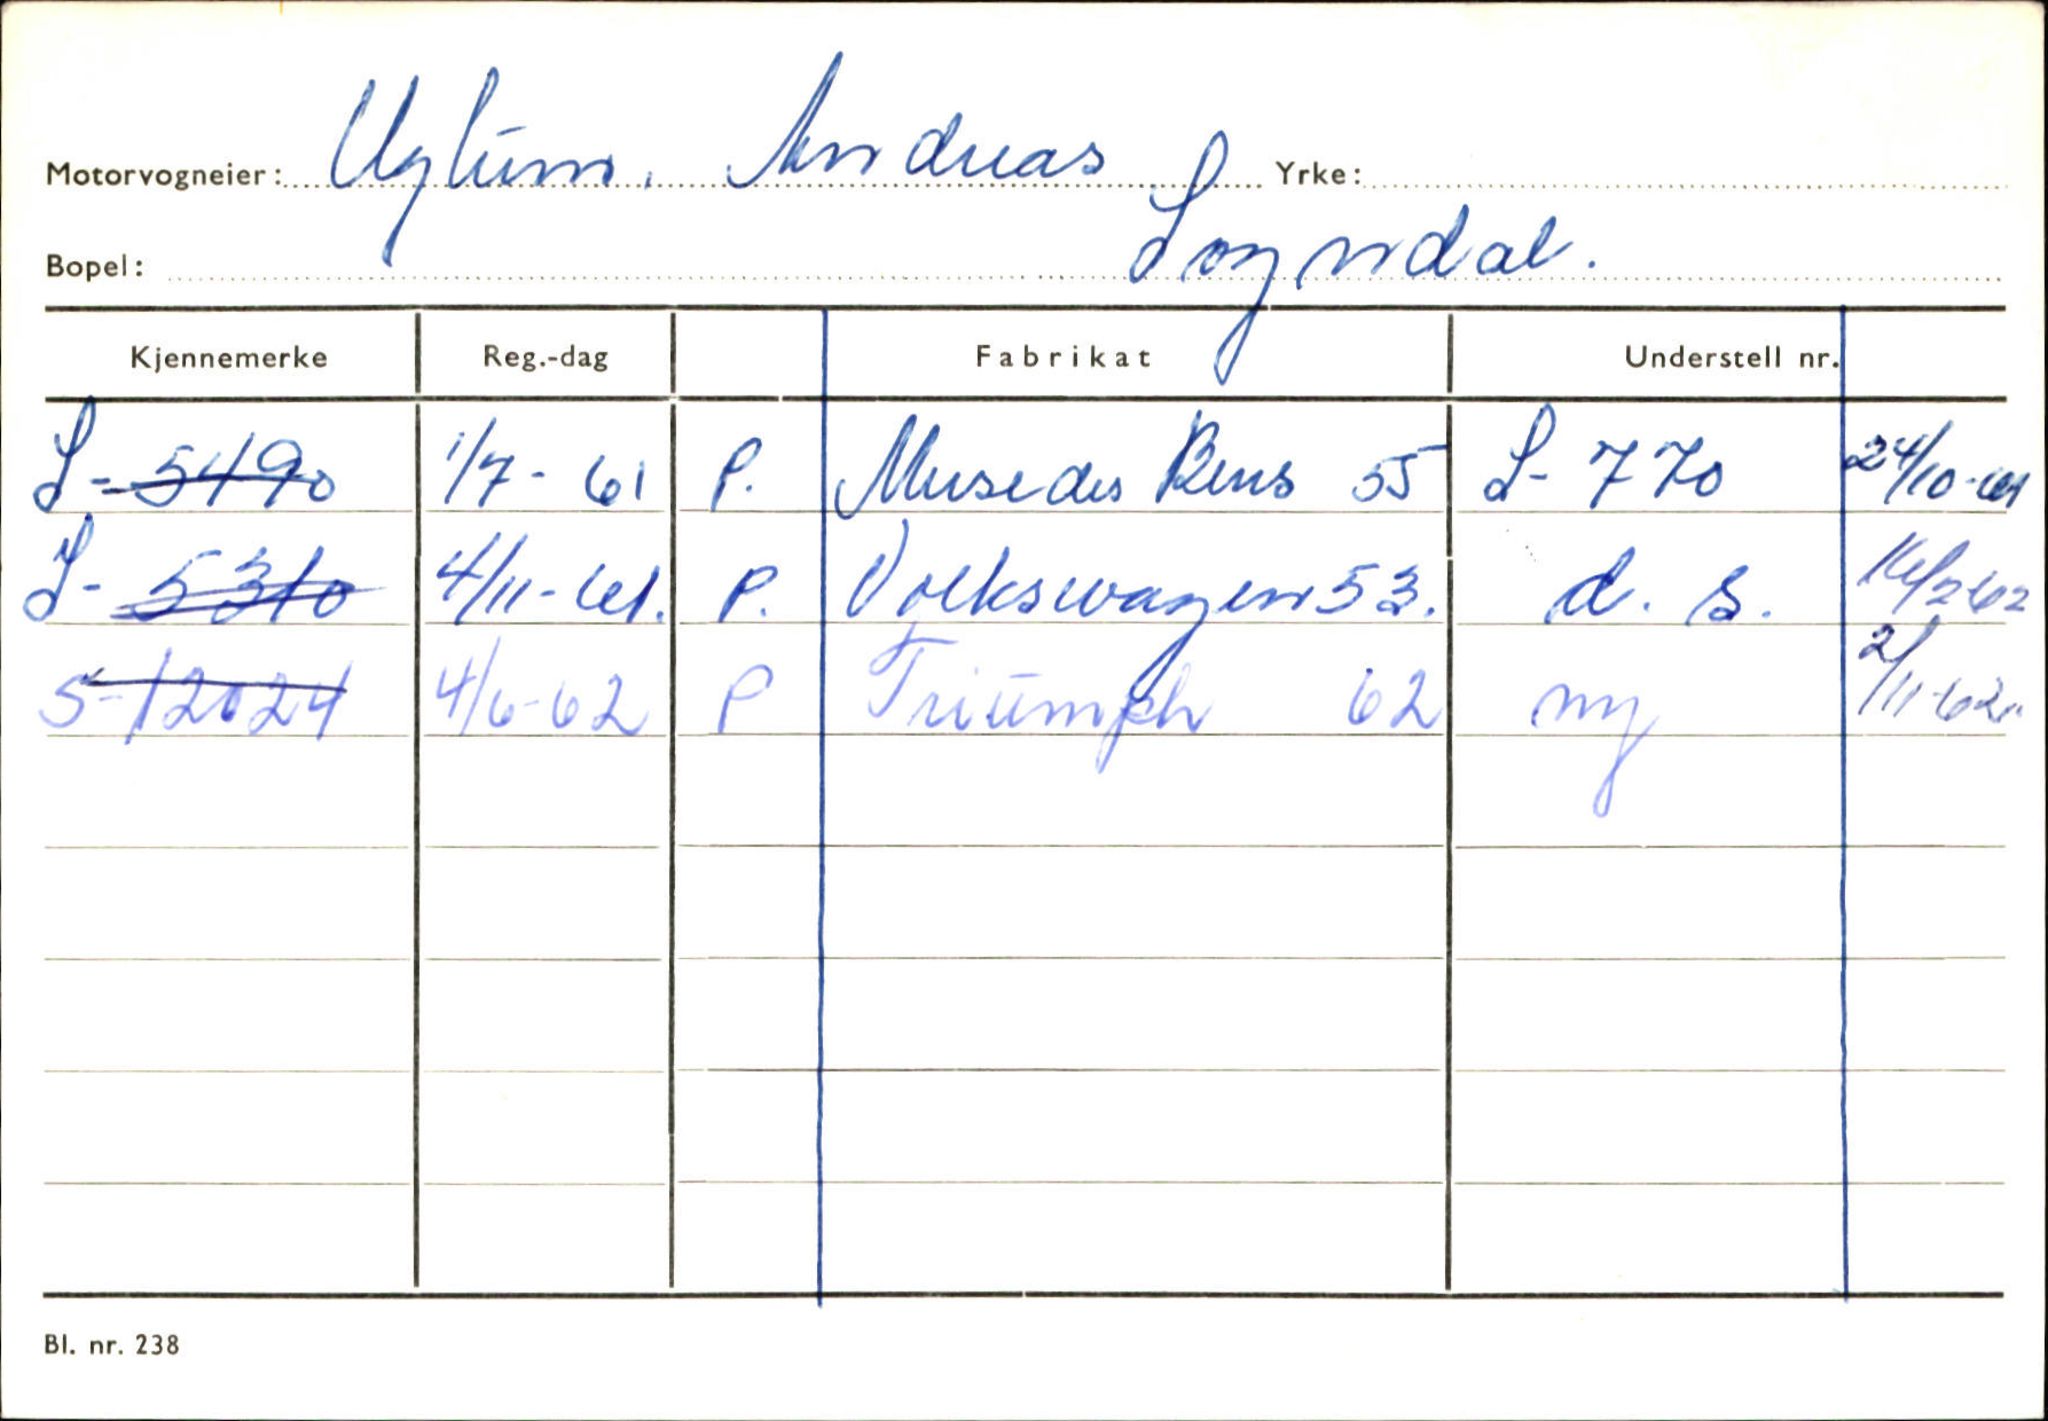 Motorvogneier: Uglum, Andreas Yrke:
Bopel: Sogndal.
Kjennemerke Reg.-dag Fabrikat Understell nr.
S-5490 1/7-61 P. Mersedes Bens 55 S-770 24/10-61
S-5310 4/11-61. P. Volkswagen 53. d. s. 16/2-62
S-12024 4/6-62 P Triumph 62 ny 2/11-62.
Bl. nr. 238